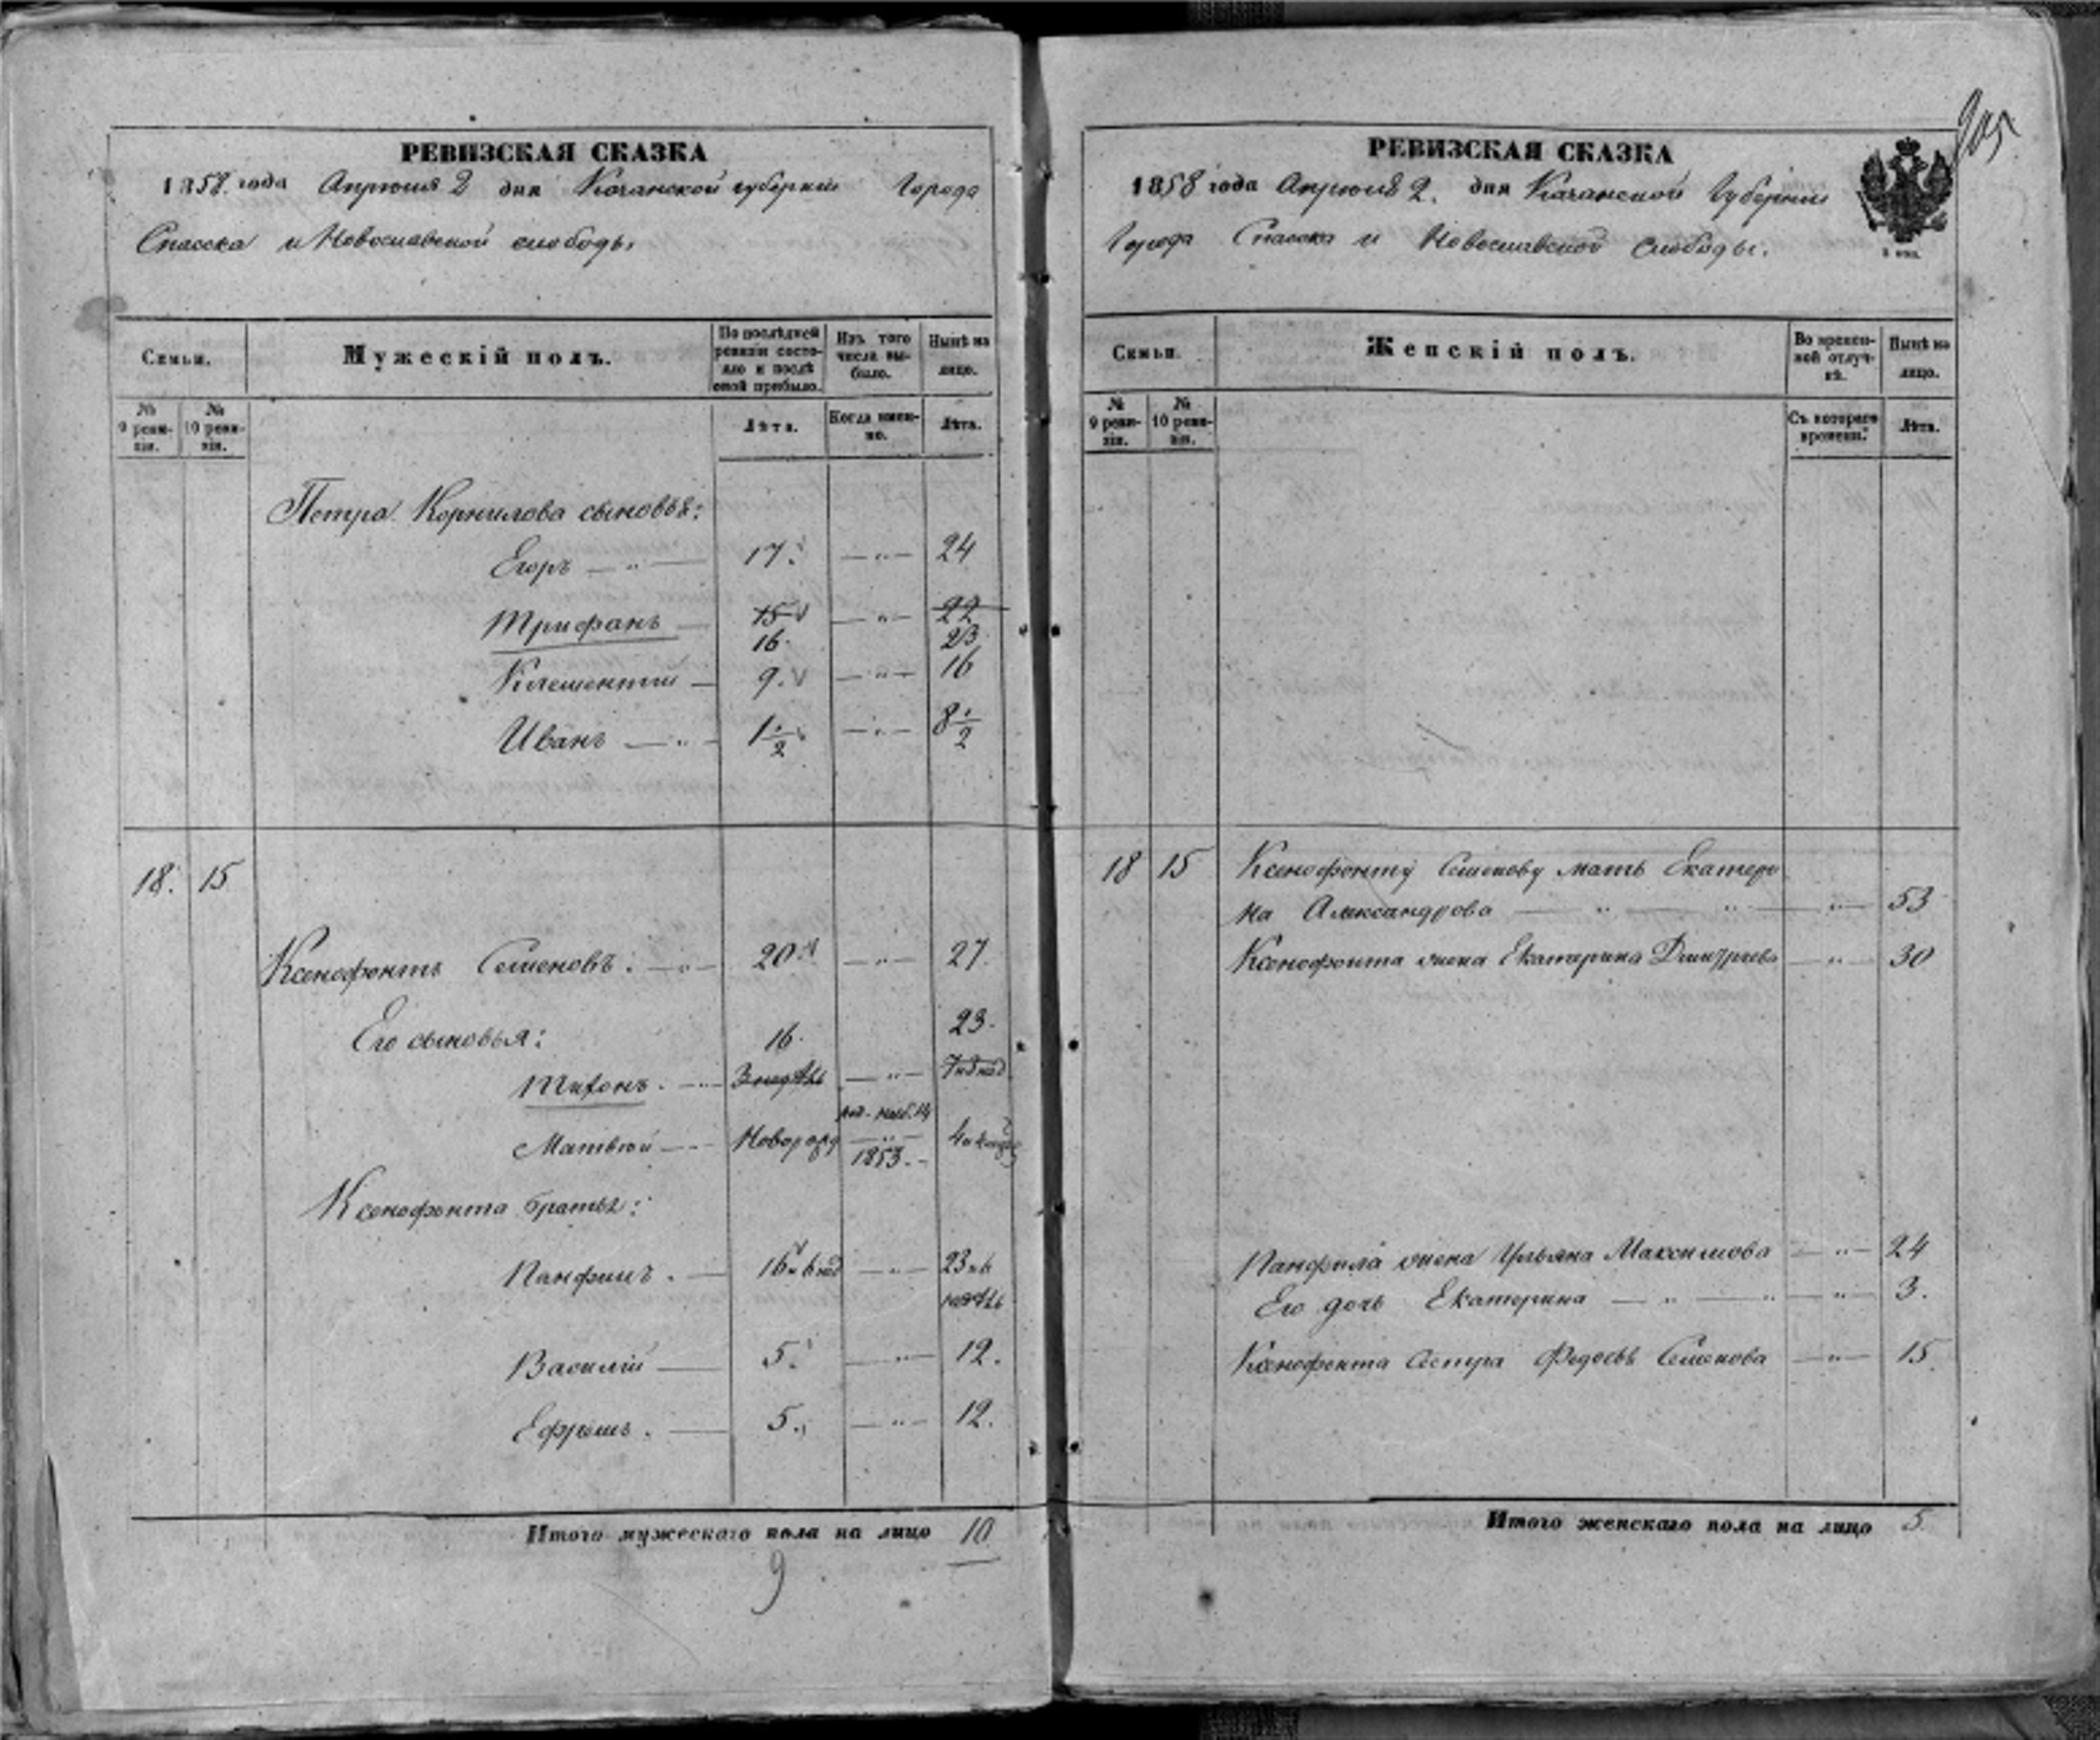 РЕВИЗСКАЯ СКАЗКА
1858 года Апреля 2 дня Казанской губернии Города
Спасска и Новославской слободы
Семьи. Мужескій полъ. По послѣдней ревизіи состояло и послѣ оной прибыло. Изъ того числа выбыло. Нынѣ на лицо.
№ 9 ревизіи. № 10 ревизіи. Лѣта. Когда именно. Лѣта.
Петра Корнилова сыновья:
Егоръ — " — 17. — " — 24
Трифанъ — 15 — " — 22
16. 23
Клементий — 9. — " — 16
Иванъ — " — 1 1/2 — " — 8 1/2
18. 15
Ксенофонтъ Семеновъ. — " — 20 — " — 27.
Его сыновья: 16. 23.
Тихонъ. — " — 3 недѣль — " — 7 и 3 нед
Матвѣй — Новорожд — " — 1853. —
Ксенофонта братья:
Панфилъ. — 16 и 6 нед — " — 23 и 6
недѣль
Василій — 5. — " — 12.
Ефремъ. — 5. — " — 12.
Итого мужескаго пола на лицо 10
9
РЕВИЗСКАЯ СКАЗКА
1858 года Апреля 2. дня Казанской Губернии
Города Спасска и Новославской слободы.
Семьи. Женскій полъ. Во временной отлучкѣ. Нынѣ на лицо.
№ 9 ревизіи. № 10 ревизіи. Съ котораго времени. Лѣта.
18 15 Ксенофонту Семенову мать Екатери
на Александрова — " — " — " — 53
Ксенофонта жена Екатерина Дмитриева — " — 30
Панфила жена Ульяна Максимова — " — 24
Его дочь Екатерина — " — " — " — 3.
Ксенофонта сестра Федосья Семенова — " — 15.
Итого женскаго пола на лицо 5